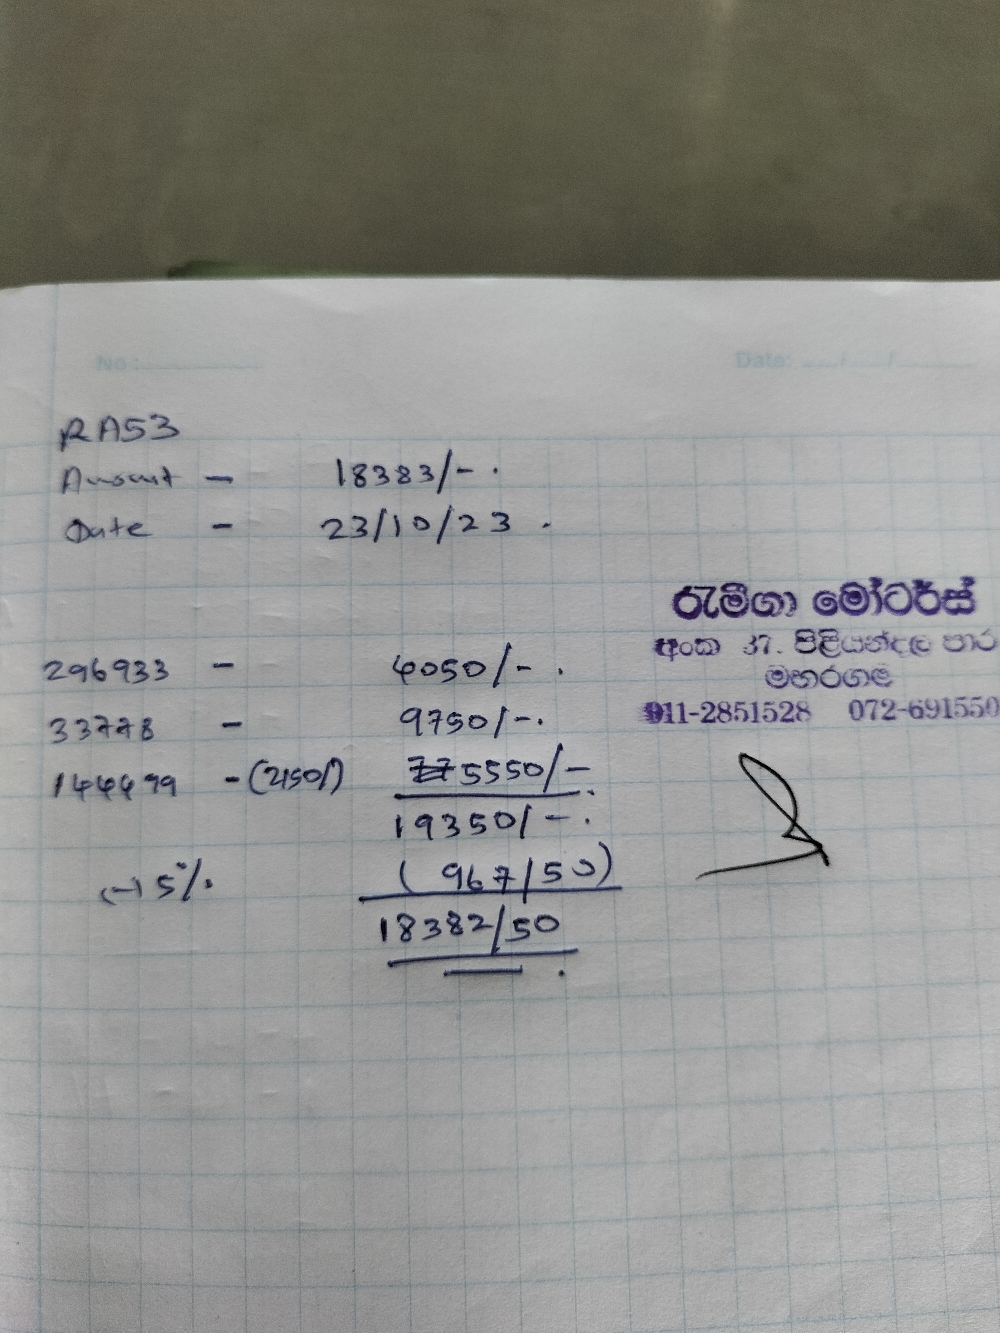 No :
Date: / /
RA53
Amount - 18383/-.
Date - 23/10/23.
රැමීගා මෝටර්ස්
අංක 37. පිළියන්දල පාර
මහරගම
011-2851528 072-691550
296933 - 4050/-.
33778 - 9750/-.
144499 - (2150/) 5550/-
19350/-.
(-) 5%. (967/50)
18382/50